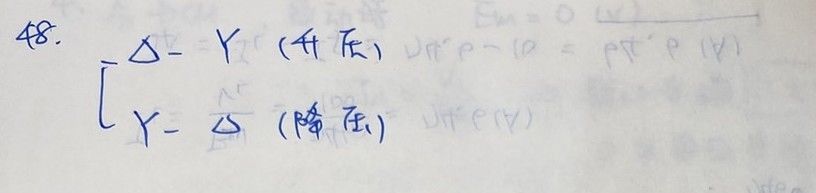 48.
Δ- Y (升压)
Y- Δ (降压)